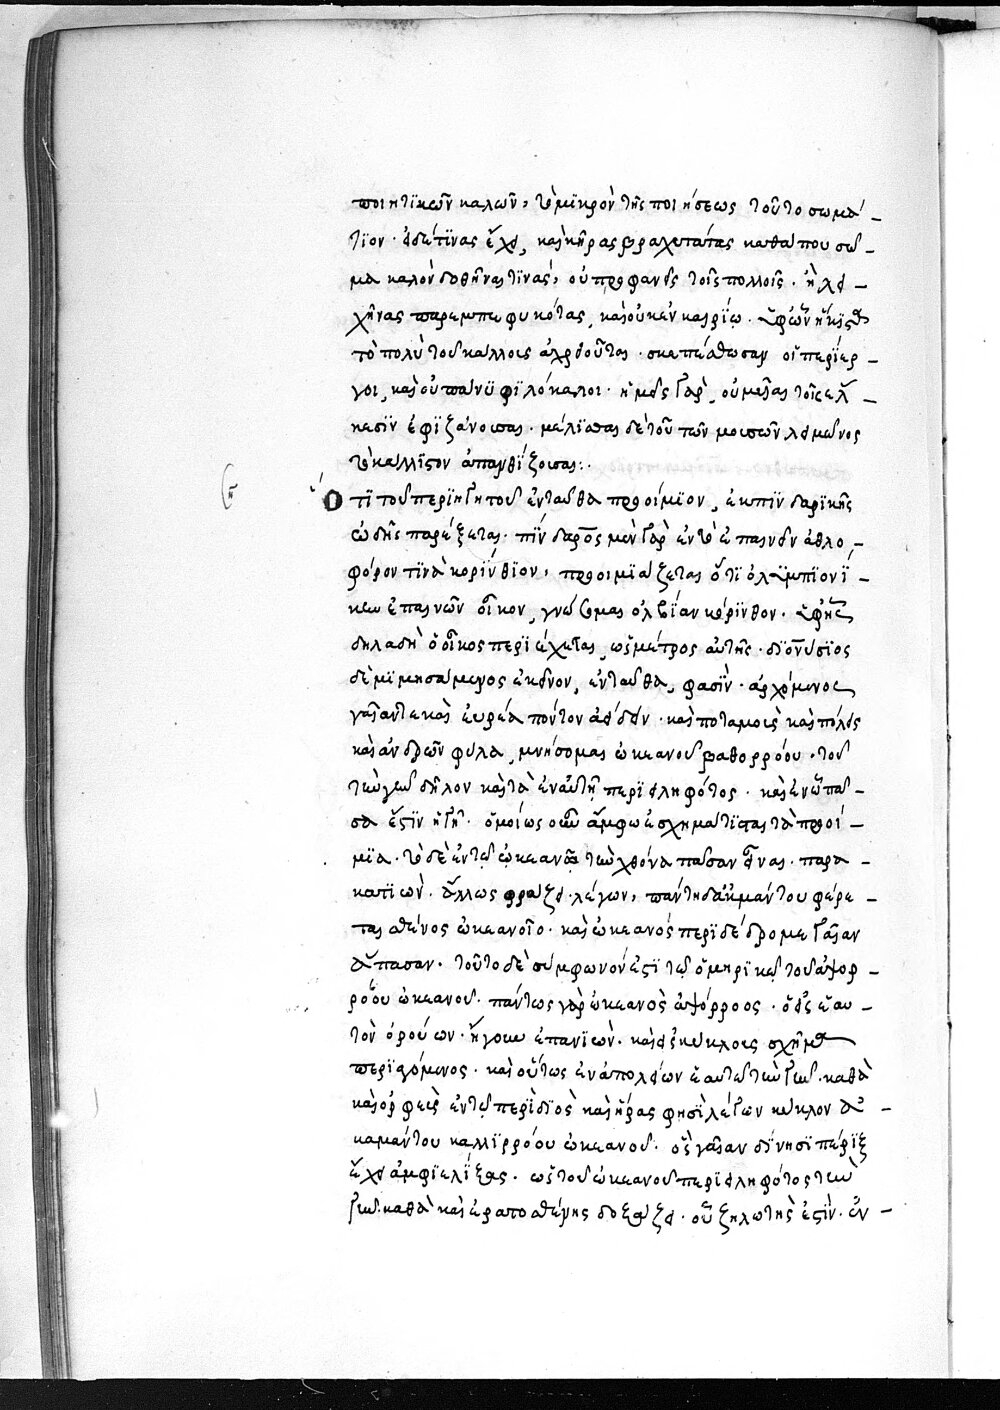 ποιητικῶν καλῶν, τὸ μικρὸν τῆς ποιήσεως τοῦτο σωμά-
τιον· εἰ δέ τινας ἔχει καὶ κῆρας βραχυτάτας καθάπου σῶ-
μα καλὸν δοθῆναί τινας, οὐ προφανεῖς τοῖς πολλοῖς· ἢ λει-
χῆνας παρεμπεφυκότας, καὶ οὐκ ἐν καιρίῳ· ἐφ' ὧν ἥκιστα
τὸ πολὺ τοῦ κάλλους ἀχρειοῦται· σκεπτέσθωσαν οἱ περίερ-
γοι, καὶ οὐ πάνυ φιλόκαλοι· ἡμεῖς γὰρ, οὐ μυῖαι τοῖς ἕλ-
κεσιν ἐφιζάνουσαι· μέλισσαι δὲ τοῦ τῶν μουσῶν λειμῶνος
τὸ κάλλιστον ἀπανθίζουσαι:
η
Ὅτι τοῦ περιηγητοῦ ἐνταῦθα προοίμιον, ἐκ πινδαρικῆς
ᾠδῆς παρέξεσται· πίνδαρος μὲν γὰρ ἐν τῷ ἐπαινεῖν ἀθλο-
φόρον τινὰ κορίνθιον, προοιμιάζεται ὅτι ὀλύμπιονί-
κην ἐπαινῶν οἶκον, γνώσομαι ὀλβίαν κόρινθον· ἐφ' ἧς
δηλαδὴ ὁ οἶκος περιέχεται, ὡς μέρος αὐτῆς· διονύσιος
δὲ μιμησάμενος ἐκεῖνον, ἐνταῦθα, φασὶν· ἀρχόμενος
γαῖάν τε καὶ εὐρέα πόντον ἀείδειν· καὶ ποταμοὺς καὶ πόλεις
καὶ ἀνδρῶν φῦλα, μνήσομαι ὠκεανοῦ βαθυρρόου· τοῦ
τὴν γῆν δῆλον καὶ τὰ ἐν αὐτῇ περιειληφότος· καὶ ἐν ᾧ πᾶ-
σα ἐστὶν ἡ γῆ· ὁμοίως οὖν ἄμφω ἐσχημάτισται τὰ προοί-
μια· τὸ δὲ ἐν τῷ ὠκεανῷ τὴν χθόνα πᾶσαν εἶναι· παρα-
κατιὼν· ἄλλως φράζει λέγων, πάντη δ' ἀκαμάτου φέρε-
ται σθένος ὠκεανοῖο· καὶ ὠκεανὸς περιδέδρομε γαῖαν
ἅπασαν· τοῦτο δὲ σύμφωνόν ἐστι τῷ ὁμηρικῷ τοῦ ἀψορ-
ρόου ὠκεανοῦ· πάντως γὰρ ὠκεανὸς ἀψόρροος· ὁ εἰς ἑαυ-
τὸν ὀρούων· ἤγουν ἐπανιὼν· καὶ εἰς κύκλους σχῆμα
περιαγόμενος· καὶ οὕτως ἐναπολαβὼν ἑαυτῷ τὴν γῆν· καθὰ
καὶ ὀρφεὺς ἐν τῷ περὶ διὸς καὶ ἥρας φησὶ λέγων κύκλον ἀ-
καμάτου καλλιρρόου ὠκεανοῦ· ὃς γαῖαν δίνησι πέριξ
ἔχει ἀμφιελίξας· ὡς τοῦ ὠκεανοῦ περιειληφότος τὴν
γῆν· καθὰ καὶ ἐρατοσθένης δοξάζει· οὗ ζηλωτὴς ἐστὶν· ἐν-